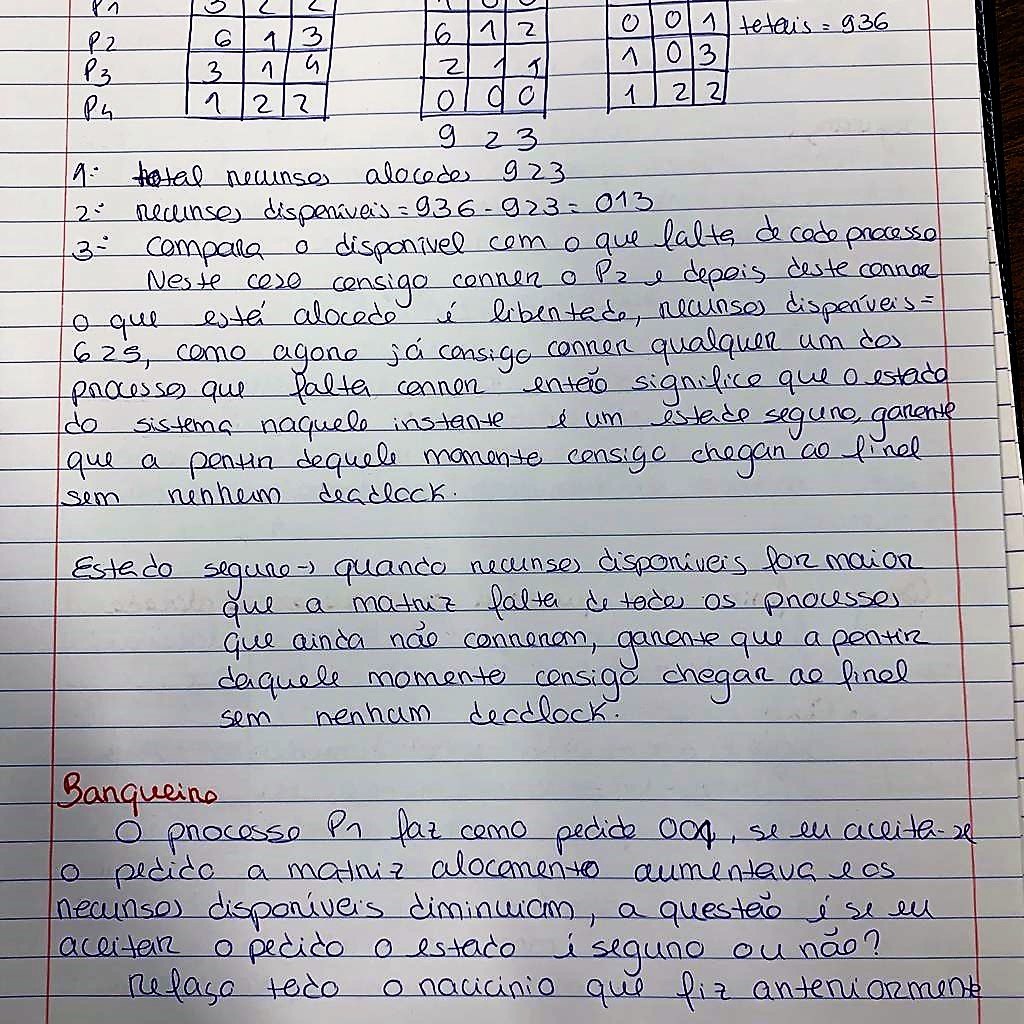 P1 3 2 2 1 0 0
P2 6 1 3 6 1 2 0 0 1 totais = 936
P3 3 1 4 2 1 1 1 0 3
P4 1 2 2 0 0 0 1 2 2
9 2 3
1º: total recursos alocados 923
2º: recursos disponíveis = 936 - 923 = 013
3º: Compara o disponível com o que falta de cada processo
Neste caso consigo correr o P2 e depois deste correr
o que está alocado é libertado, recursos disponíveis =
625, como agora já consigo correr qualquer um dos
processos que falta correr então significa que o estado
do sistema naquele instante é um estado seguro, garante
que a partir daquele momento consigo chegar ao final
sem nenhum deadlock.
Estado seguro → quando recursos disponíveis for maior
que a matriz falta de todos os processos
que ainda não correram, garante que a partir
daquele momento consigo chegar ao final
sem nenhum deadlock.
Banqueiro
O processo P1 faz como pedido 001, se eu aceita-se
o pedido a matriz alocamento aumentava e os
recursos disponíveis diminuiam, a questão é se eu
aceitar o pedido o estado é seguro ou não?
Refaço todo o racicinio que fiz anteriormente